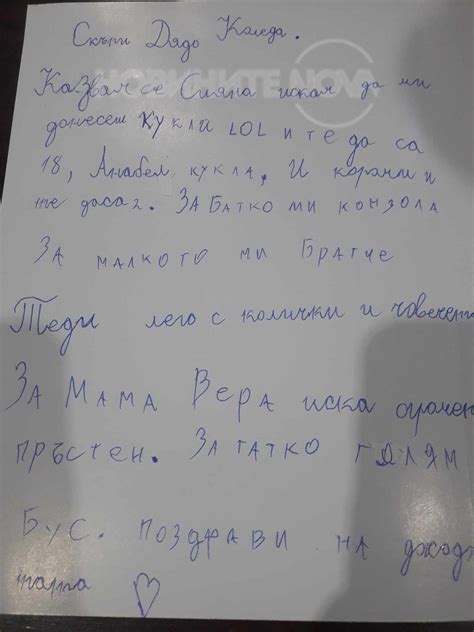 Скъпи Дядо Коледа.
НОВИНИТЕ NOVA
Казвам се Сияна искам да ми
донесеш кукли LOL и те да са
18, Анабел кукла. И корони и
те да са 2. ЗА Батко ми конзола
ЗА малкото ми Братче
Теди лего с колички и човечета
ЗА МАМА ВЕРА иска огромен
пръстен. ЗА татко гялям
Бус. поздрави на
♡